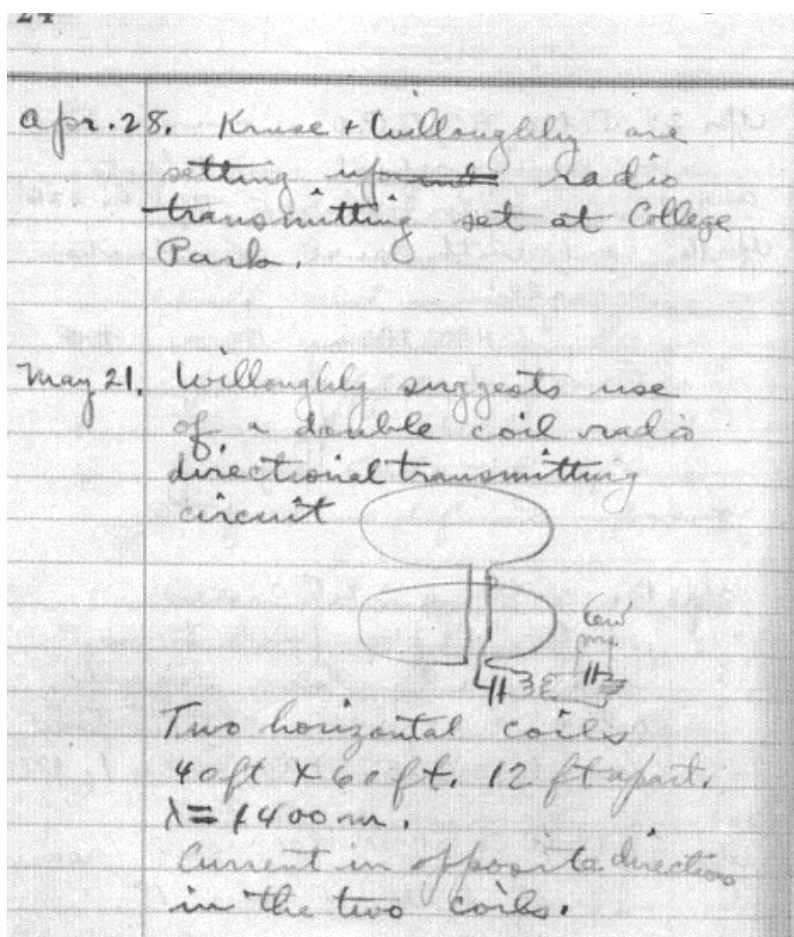 24
Apr. 28. Kruse + Willoughby are
setting up radio
transmitting set at College
Park.
May 21. Willoughby suggests use
of a double coil radio
directional transmitting
circuit
Two horizontal coils
40 ft X 60 ft. 12 ft apart.
λ = 1400 m.
Current in opposite directions
in the two coils.